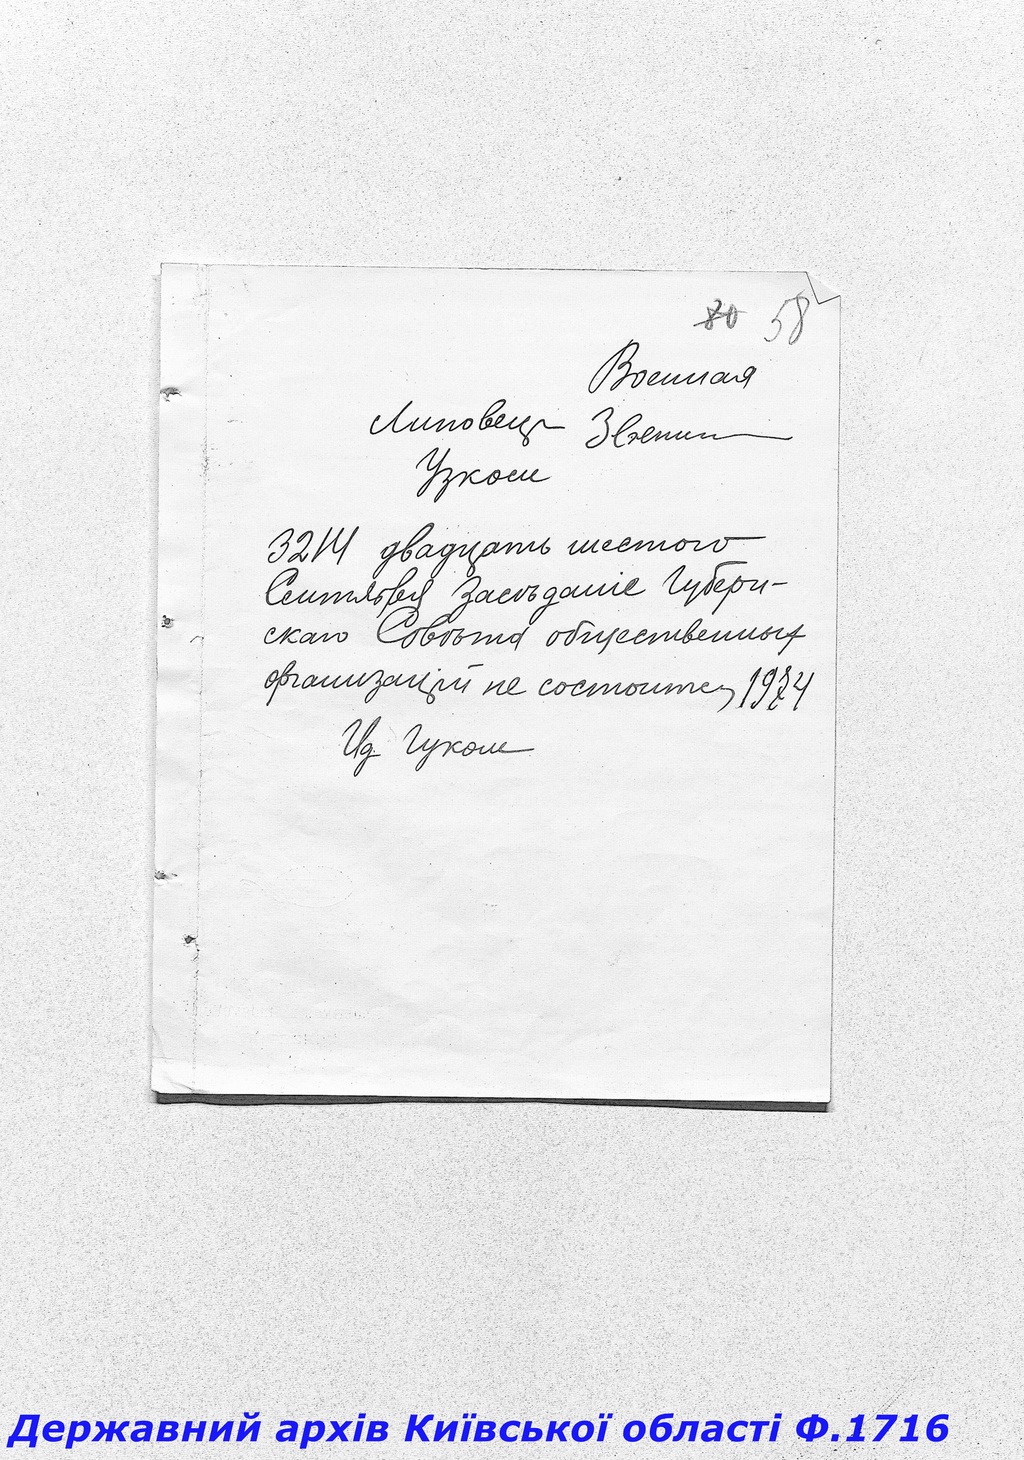 80 58
Военная
Липовец Звенич
Узком
3214 двадцать шестого
Сентября Заседание Губерн-
скаго Совѣта общественных
организацій не состоится, 1974
Ид Гуком
Державний архів Київської області Ф.1716